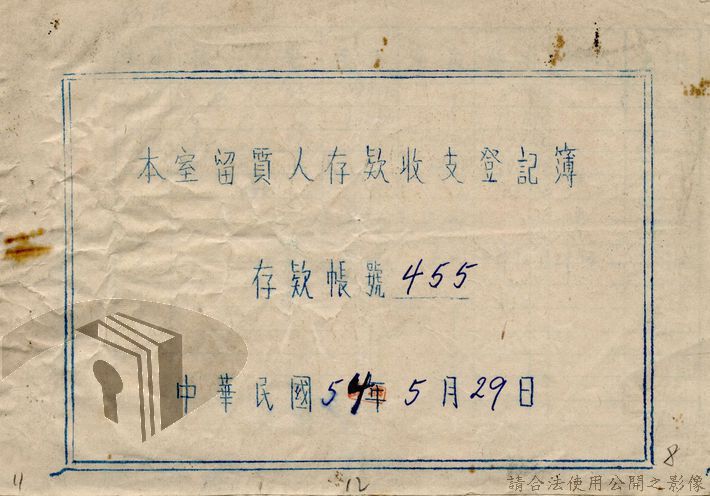 本室留質人存欵收支登記簿
存欵帳號 455
中華民國54年5月29日
8
4 12
請合法使用公開之影像